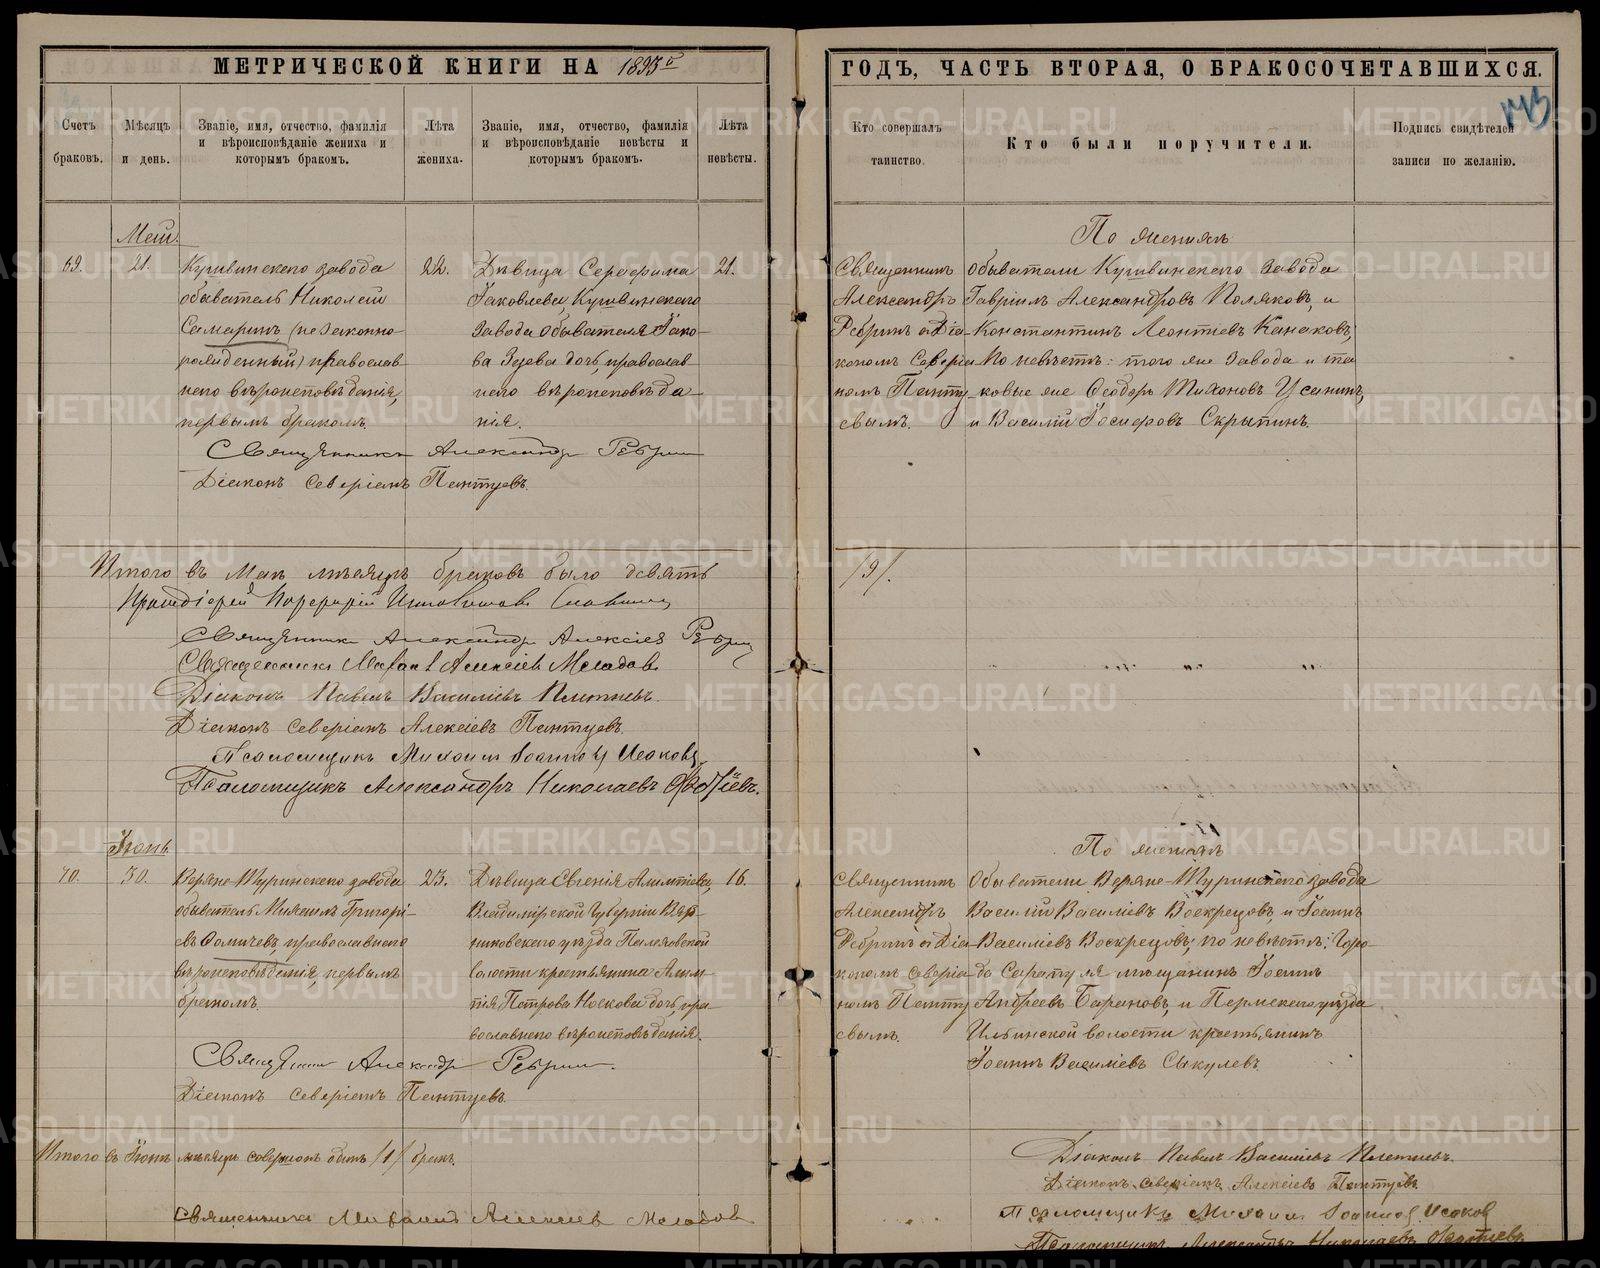 МЕТРИЧЕСКОЙ КНИГИ НА 1895й
ГОДЪ, ЧАСТЬ ВТОРАЯ, О БРАКОСОЧЕТАВШИХСЯ.
Счетъ браковъ.
Мѣсяцъ и день.
Званіе, имя, отчество, фамилія
и вѣроисповѣданіе жениха и
которымъ бракомъ.
Лѣта
жениха.
Званіе, имя, отчество, фамилія
и вѣроисповѣданіе невѣсты и
которымъ бракомъ.
Лѣта
невѣсты.
Кто совершалъ
таинство.
Кто были поручители.
Подпись свидѣтелей
записи по желанію.
Маій.
69.
21.
Кушвинскаго завода
обыватель Николай
Самаринъ, (незаконно-
рожденный) православ-
наго вѣроисповѣданія,
первымъ бракомъ.
22.
Дѣвица Серафима
Іаковлева, Кушвинскаго
завода обывателя Іако-
ва Зуева дочь, православ-
наго вѣроисповѣда-
нія.
21.
Священникъ
Александръ
Ребринъ съ Діа-
кономъ Северіа-
номъ Пантуе-
вымъ.
По женихѣ
обыватели Кушвинскаго завода
Гавріилъ Александровъ Поляковъ, и
Константинъ Леонтіевъ Канаковъ;
По невѣстѣ: того же завода и та-
ковые же Ѳеодоръ Тихоновъ Усанинъ,
и Василій Іосифовъ Скрыпинъ.
Священникъ Александръ Ребринъ
Діаконъ Северіанъ Пантуевъ.
Итого въ Маѣ мѣсяцѣ браковъ было девять
/9/.
Протоіерей Порфирій
Священникъ Александръ Алексіевъ Ребринъ
Священникъ Михаилъ Алексіевъ Молодовъ
Діаконъ Павелъ Василіевъ Плетневъ.
Діаконъ Северіанъ Алексіевъ Пантуевъ.
Псаломщикъ Михаилъ Іоанновъ Исаковъ.
Псаломщикъ Александръ Николаевъ
Іюнь.
70.
30.
Верхне-Туринскаго завода
обыватель Михаилъ Григорі-
евъ Ѳомичевъ, православнаго
вѣроисповѣданія, первымъ
бракомъ.
23.
Дѣвица Евгенія Алимпіева,
Владимірской Губерніи Вяз-
никовскаго уѣзда Палеховской
волости крестьянина Алим-
пія Петрова Носкова дочь, пра-
вославнаго вѣроисповѣданія.
16.
Священникъ
Александръ
Ребринъ съ Діа-
кономъ Северіа-
номъ Панту-
евымъ.
По женихѣ
Обыватели Верхне-Туринскаго завода
Василій Василіевъ Воскрецовъ, и Іоаннъ
Василіевъ Воскрецовъ; по невѣстѣ: Горо-
да Сарапуля мѣщанинъ Іоаннъ
Андреевъ Барановъ, и Пермскаго уѣзда
Ильинской волости крестьянинъ
Іоаннъ Василіевъ Сыкулевъ.
Священникъ Александръ Ребринъ.
Діаконъ Северіанъ Пантуевъ.
Итого въ Іюнѣ мѣсяцѣ совершонъ былъ /1/ бракъ.
Священникъ Михаилъ Алексіевъ Молодовъ
Діаконъ Павелъ Василіевъ Плетневъ.
Діаконъ Северіанъ Алексіевъ Пантуевъ
Псаломщикъ Михаилъ Іоанновъ Исаковъ
Псаломщикъ Александръ Николаевъ
METRIKI.GASO-URAL.RU